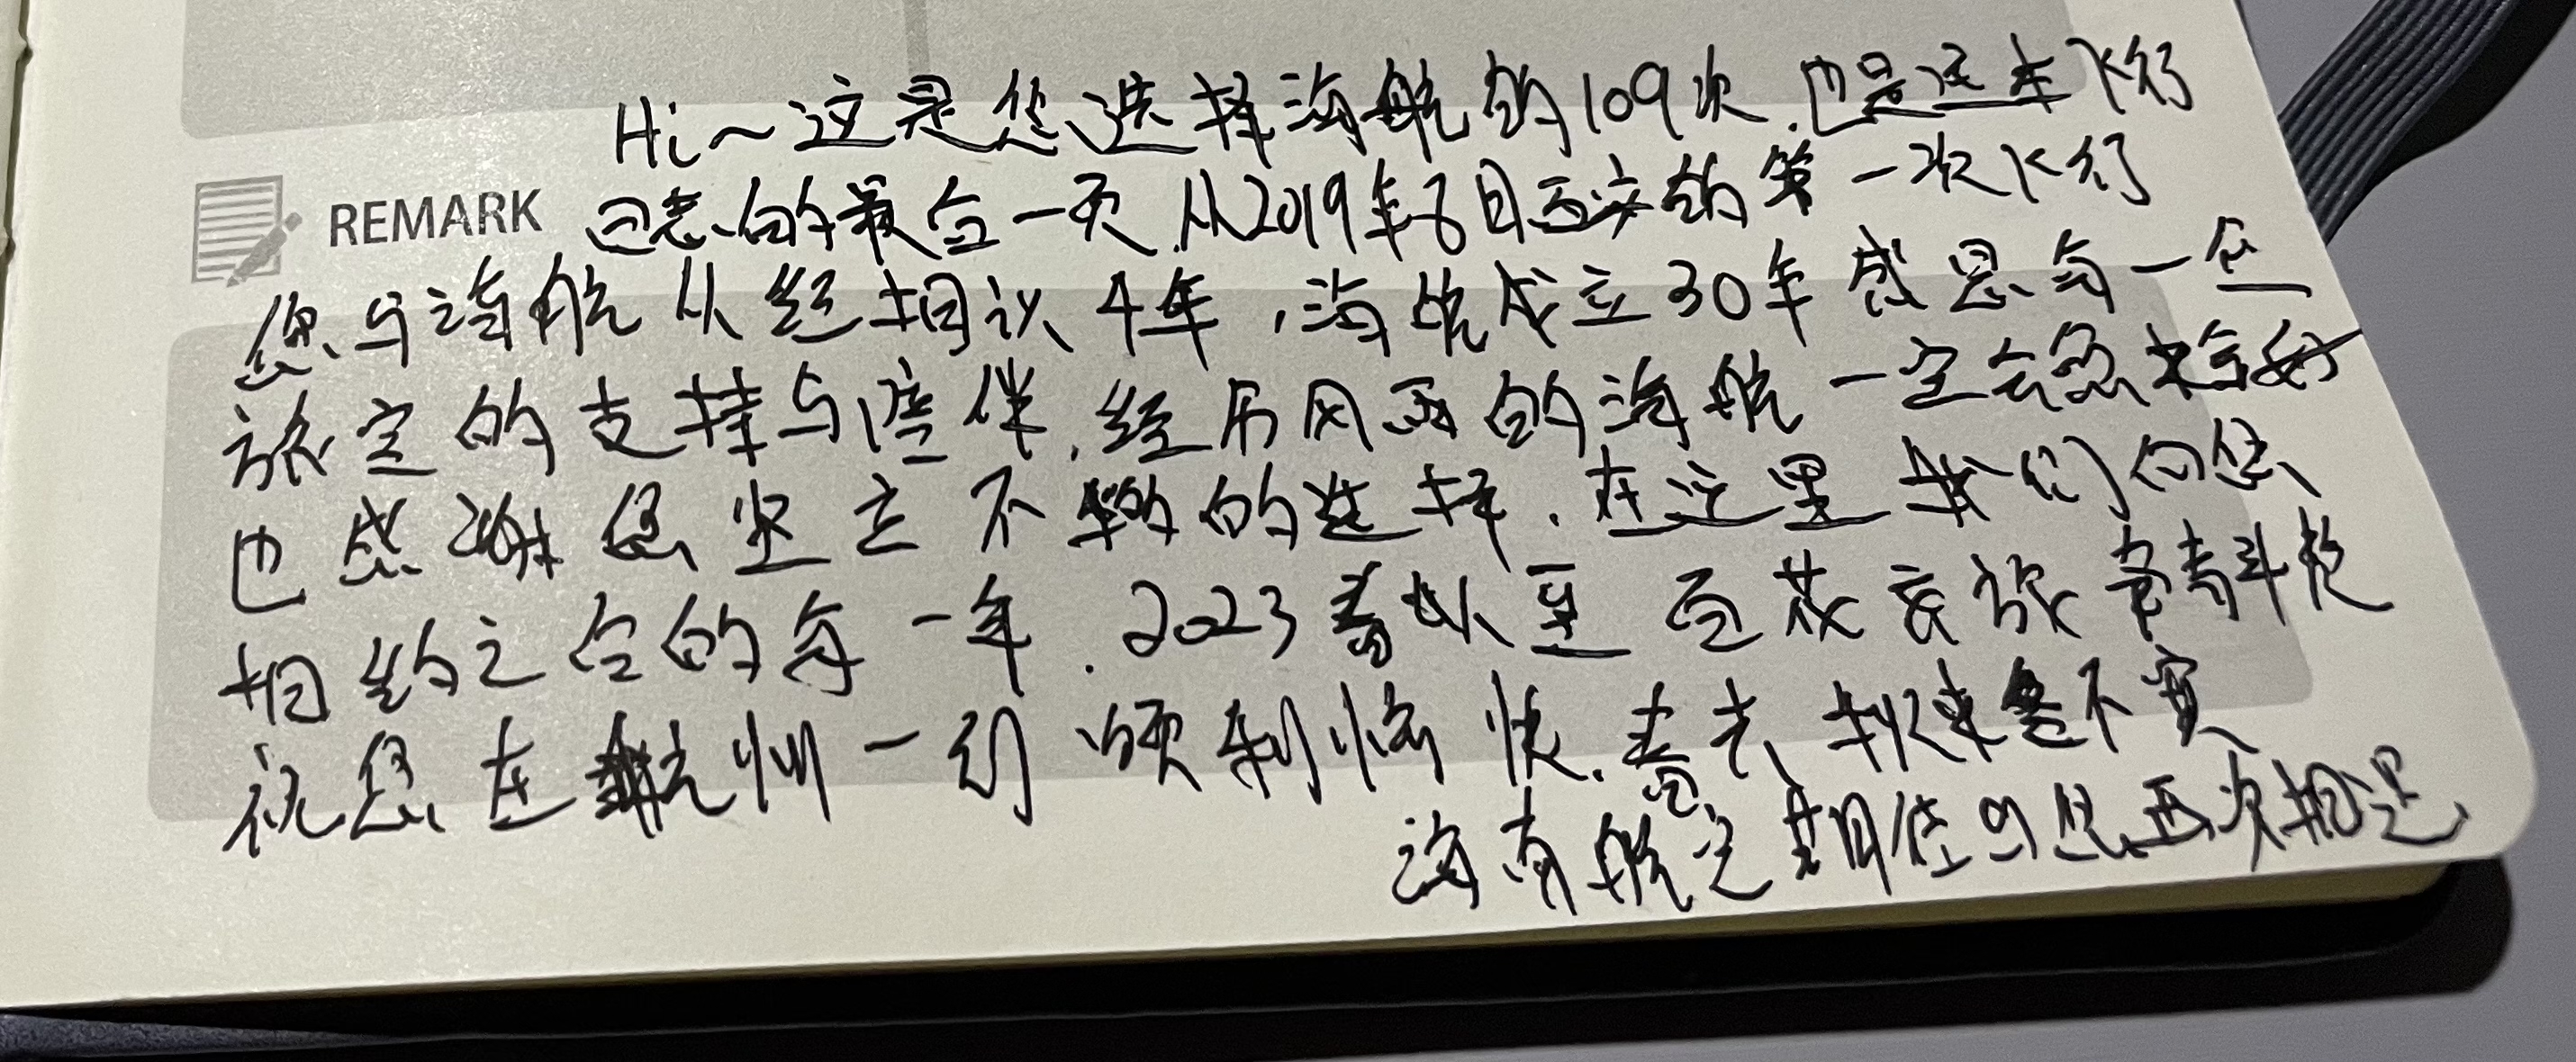 Hi~这是您选择海航的109次.也是这本飞行
REMARK 日志的最后一页.从2019年6月 的第一次飞行
您与海航从经相识4年,海航成立30年感恩每一位
旅客的支持与陪伴.经历风雨的海航一定会愈来愈好
也感谢您坚定不移的选择.在这里我们向您
相约之后的每一年.2023春以至 百花 旅
祝您在杭州一切顺利愉快.春去秋来 不
海南航空期待与您再次相遇